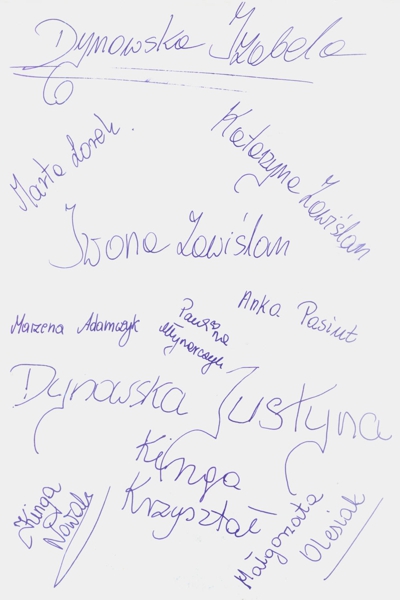 Dynowska Izabela
Marta Żorek.
Katarzyna Zawiślan
Iwona Zawiślan
Anka Pasiut
Marzena Adamczyk
Paulina
Młynarczyk
Dynowska Justyna
Kinga
Krzyształ
Kinga
Nowak
Małgorzata
Olesiak